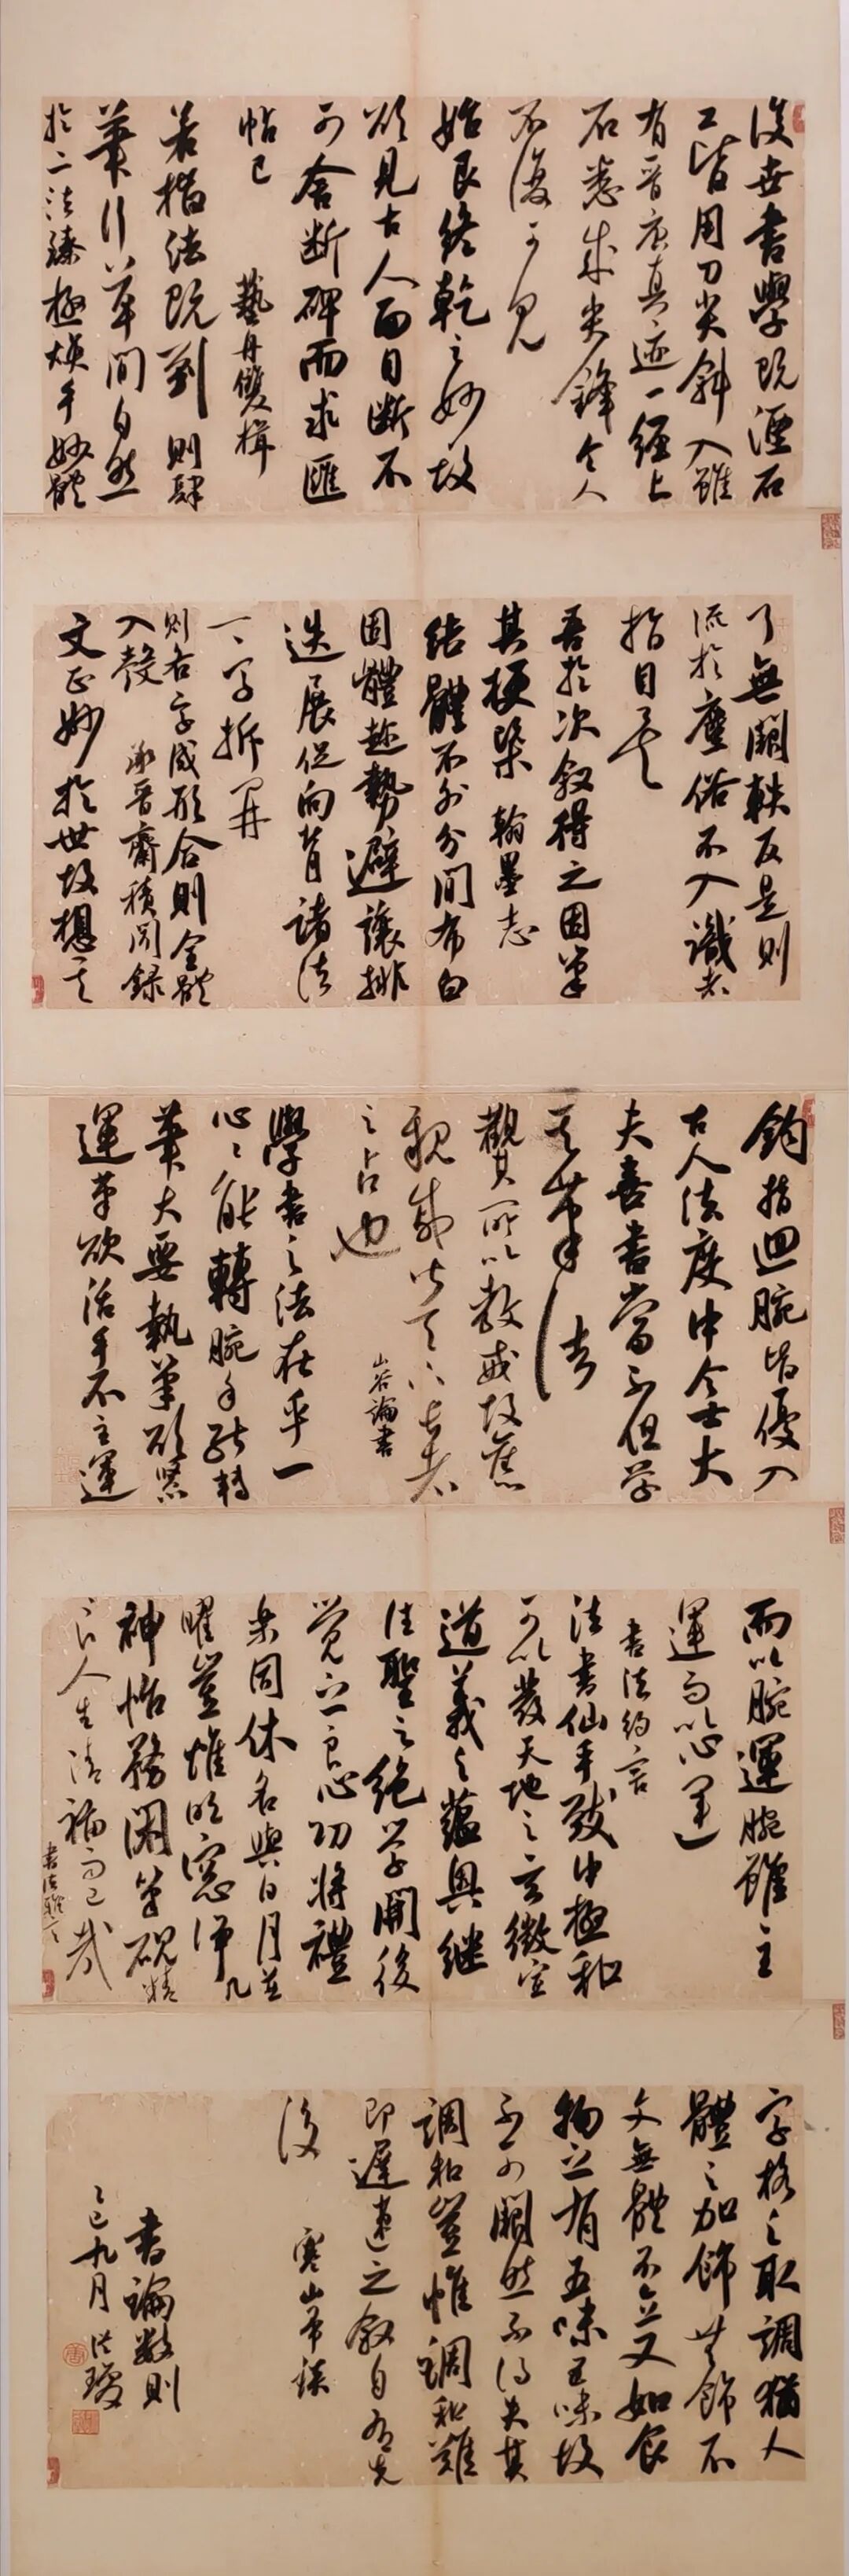 後世書學既湮石
工皆用刀尖斜入雖
有晉唐真迹一經上
石悉成尖鋒令人
不復可見
始艮終乾之妙故
欲見古人面目斷不
可舍斷碑而求匯
帖已 藝舟雙楫
若楷法既到則肆
筆行草間自然
於二法臻極煥手妙體
了無闕軼反是則
流於塵俗不入識者
指目矣
吾於次叙得之因筆
其梗槩 翰墨志
結體不外分間布白
因體趁勢避讓排
迭展促向背諸法
一一字拆開
則各字成形合則全體
入彀 承晉齋積聞錄
文正妙於世故想其
鈎指迴腕皆優入
古人法度中今士大
夫喜書當不但學
其筆法
觀其所以教戒故舊
親戚皆天下長者
之言也 山谷論書
學書之法在乎一
心心能轉腕手能轉
筆大要執筆欲緊
運筆欲活手不主運
而以腕運腕雖主
運而以心運
書法約言
法書仙手致中極和
可以發天地之玄微宣
道義之蘊奧繼
往聖之絕學開後
覺之良心功將禮
樂同休名與日月並
曜豈惟明窓淨几
神怡務閑筆硯精
良人生清福而已哉
書法雅言
字格之取調猶人
體之加飾無飾不
文無體不立又如食
物之有五味五味故
不可闕然不得失其
調和豈惟調和雖
即遲速之叙自有先
後 寒山帚談
書論數則
乙巳九月